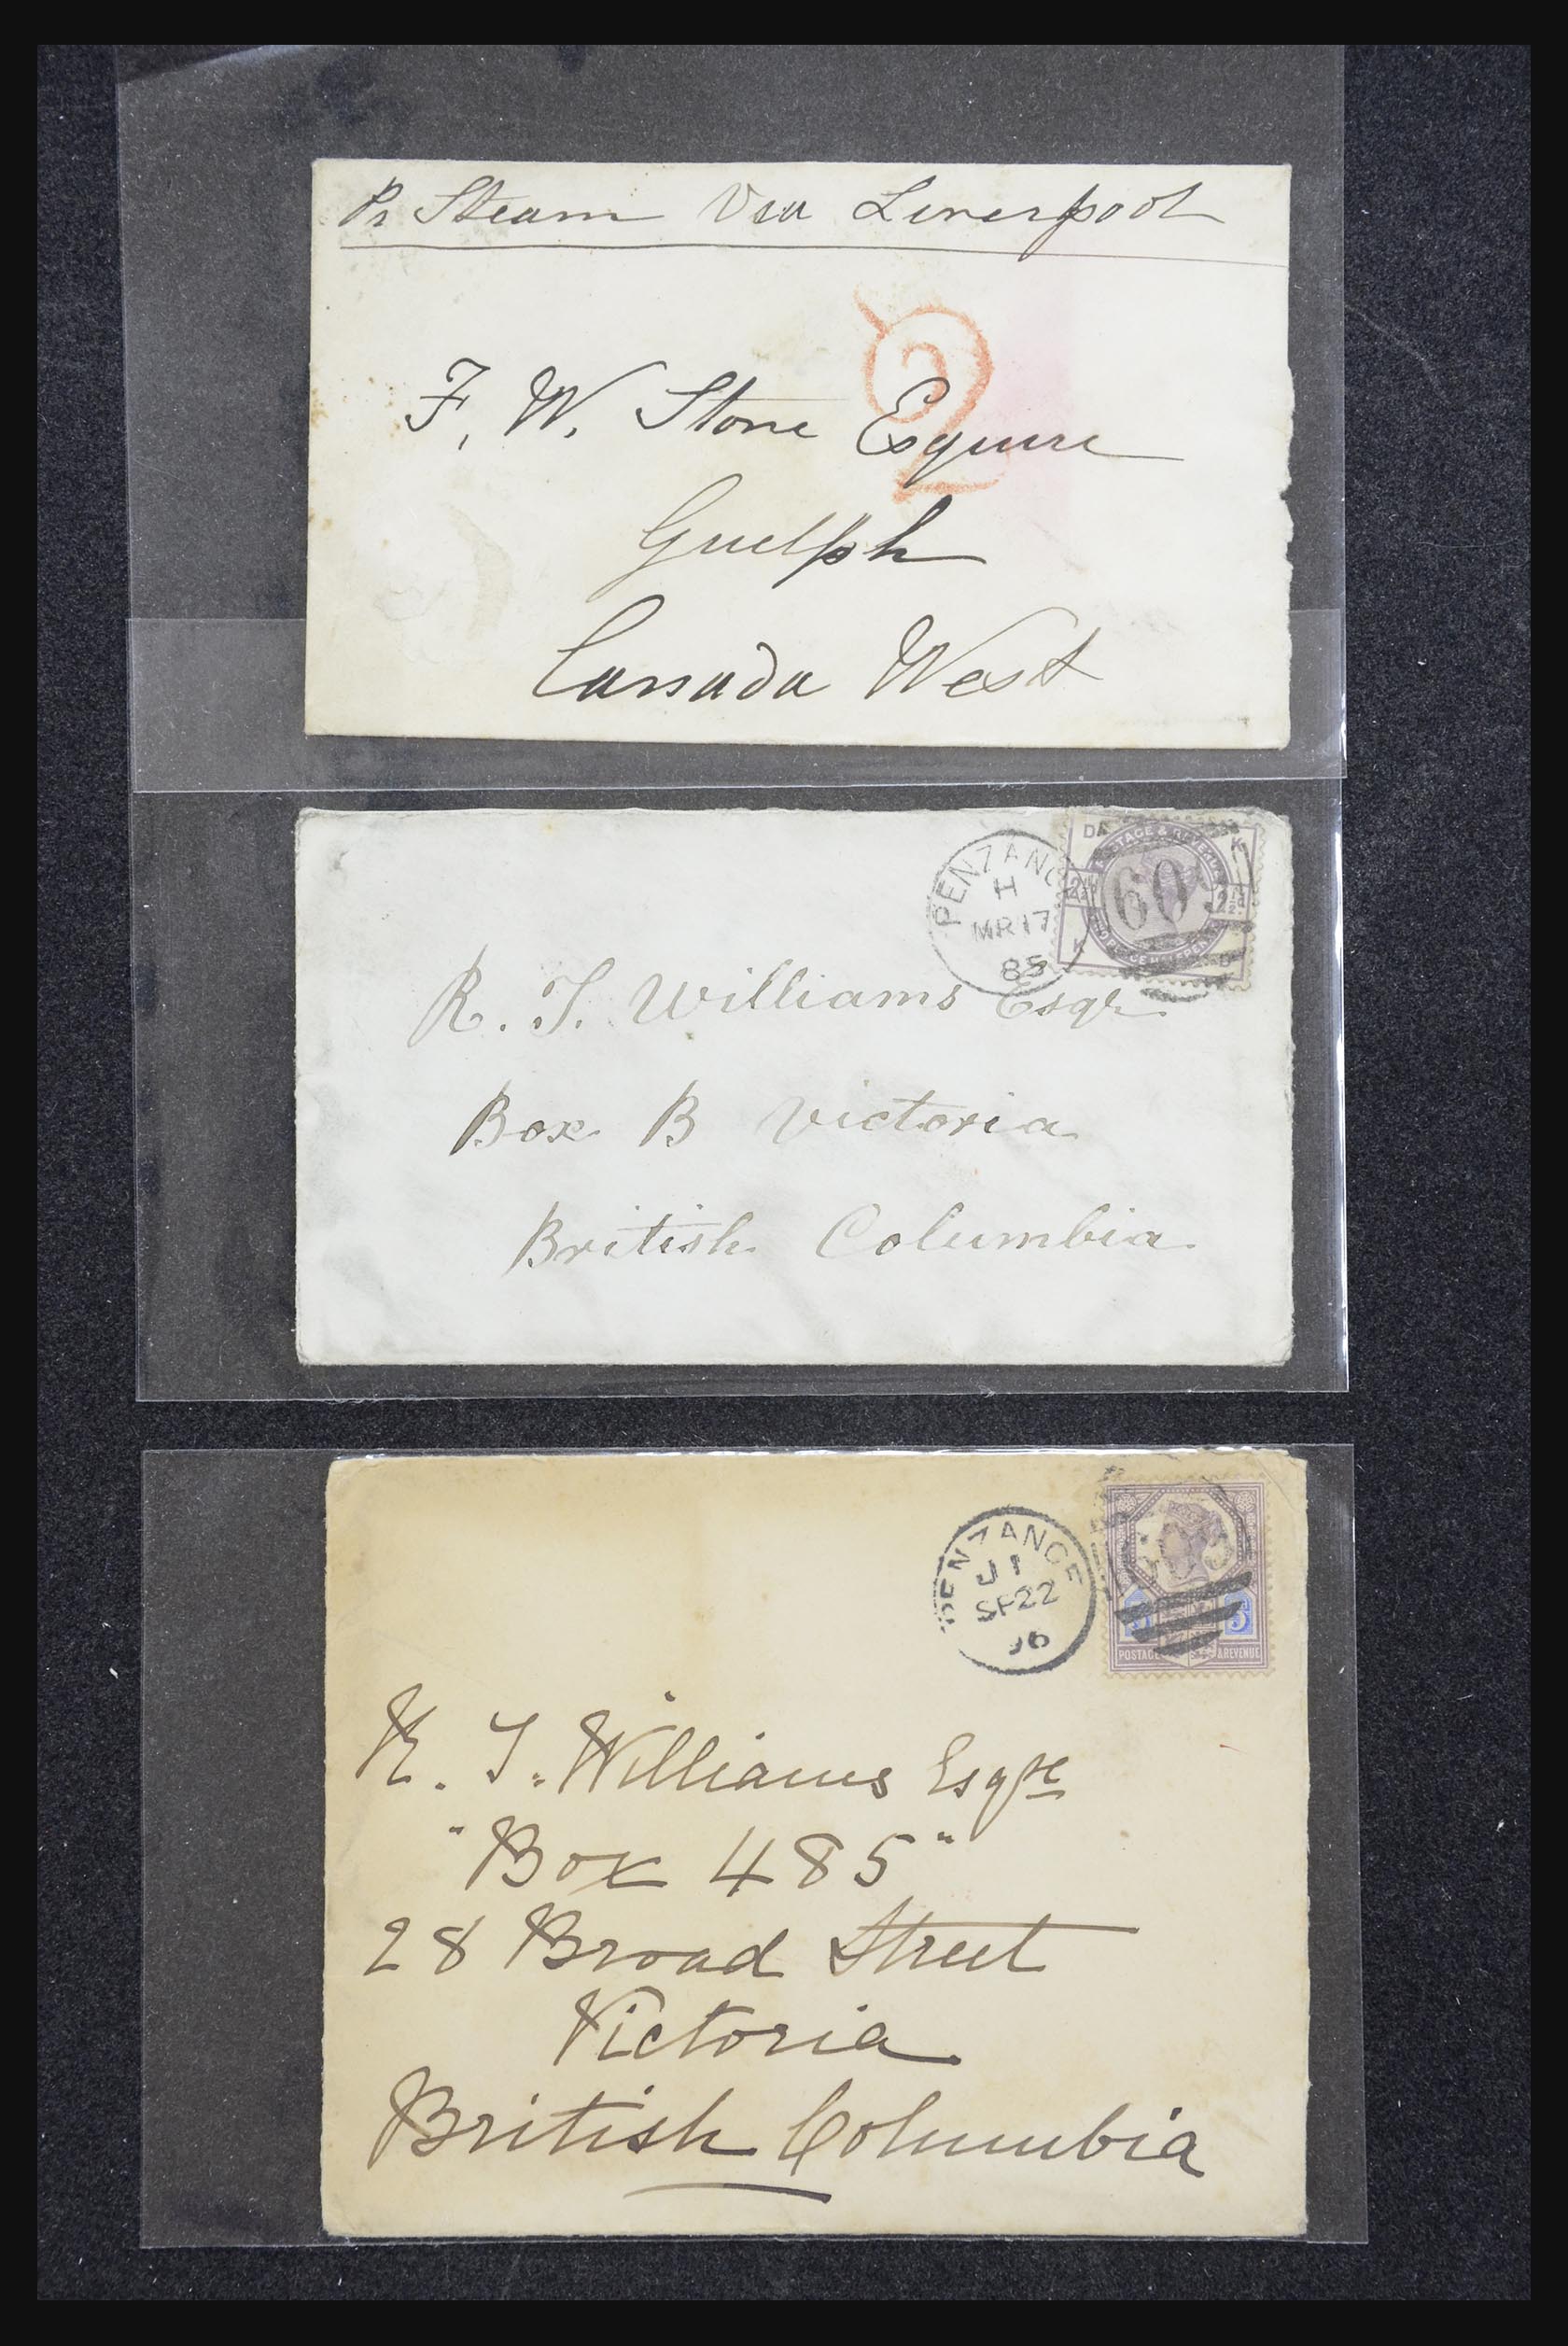 Pr Steam Via Liverpool
2
F. W. Stone Esquire
Guelph
Canada West
PENZANCE
H
MR 17
85
DK
K
POSTAGE & REVENUE
2½d
2½d
K
D
R. T. Williams Esqr
Box B Victoria
British Columbia
PENZANCE
J1
SP 22
96
5
POSTAGE & REVENUE
R. T. Williams Esqre
"Box 485"
28 Broad Street
Victoria
British Columbia